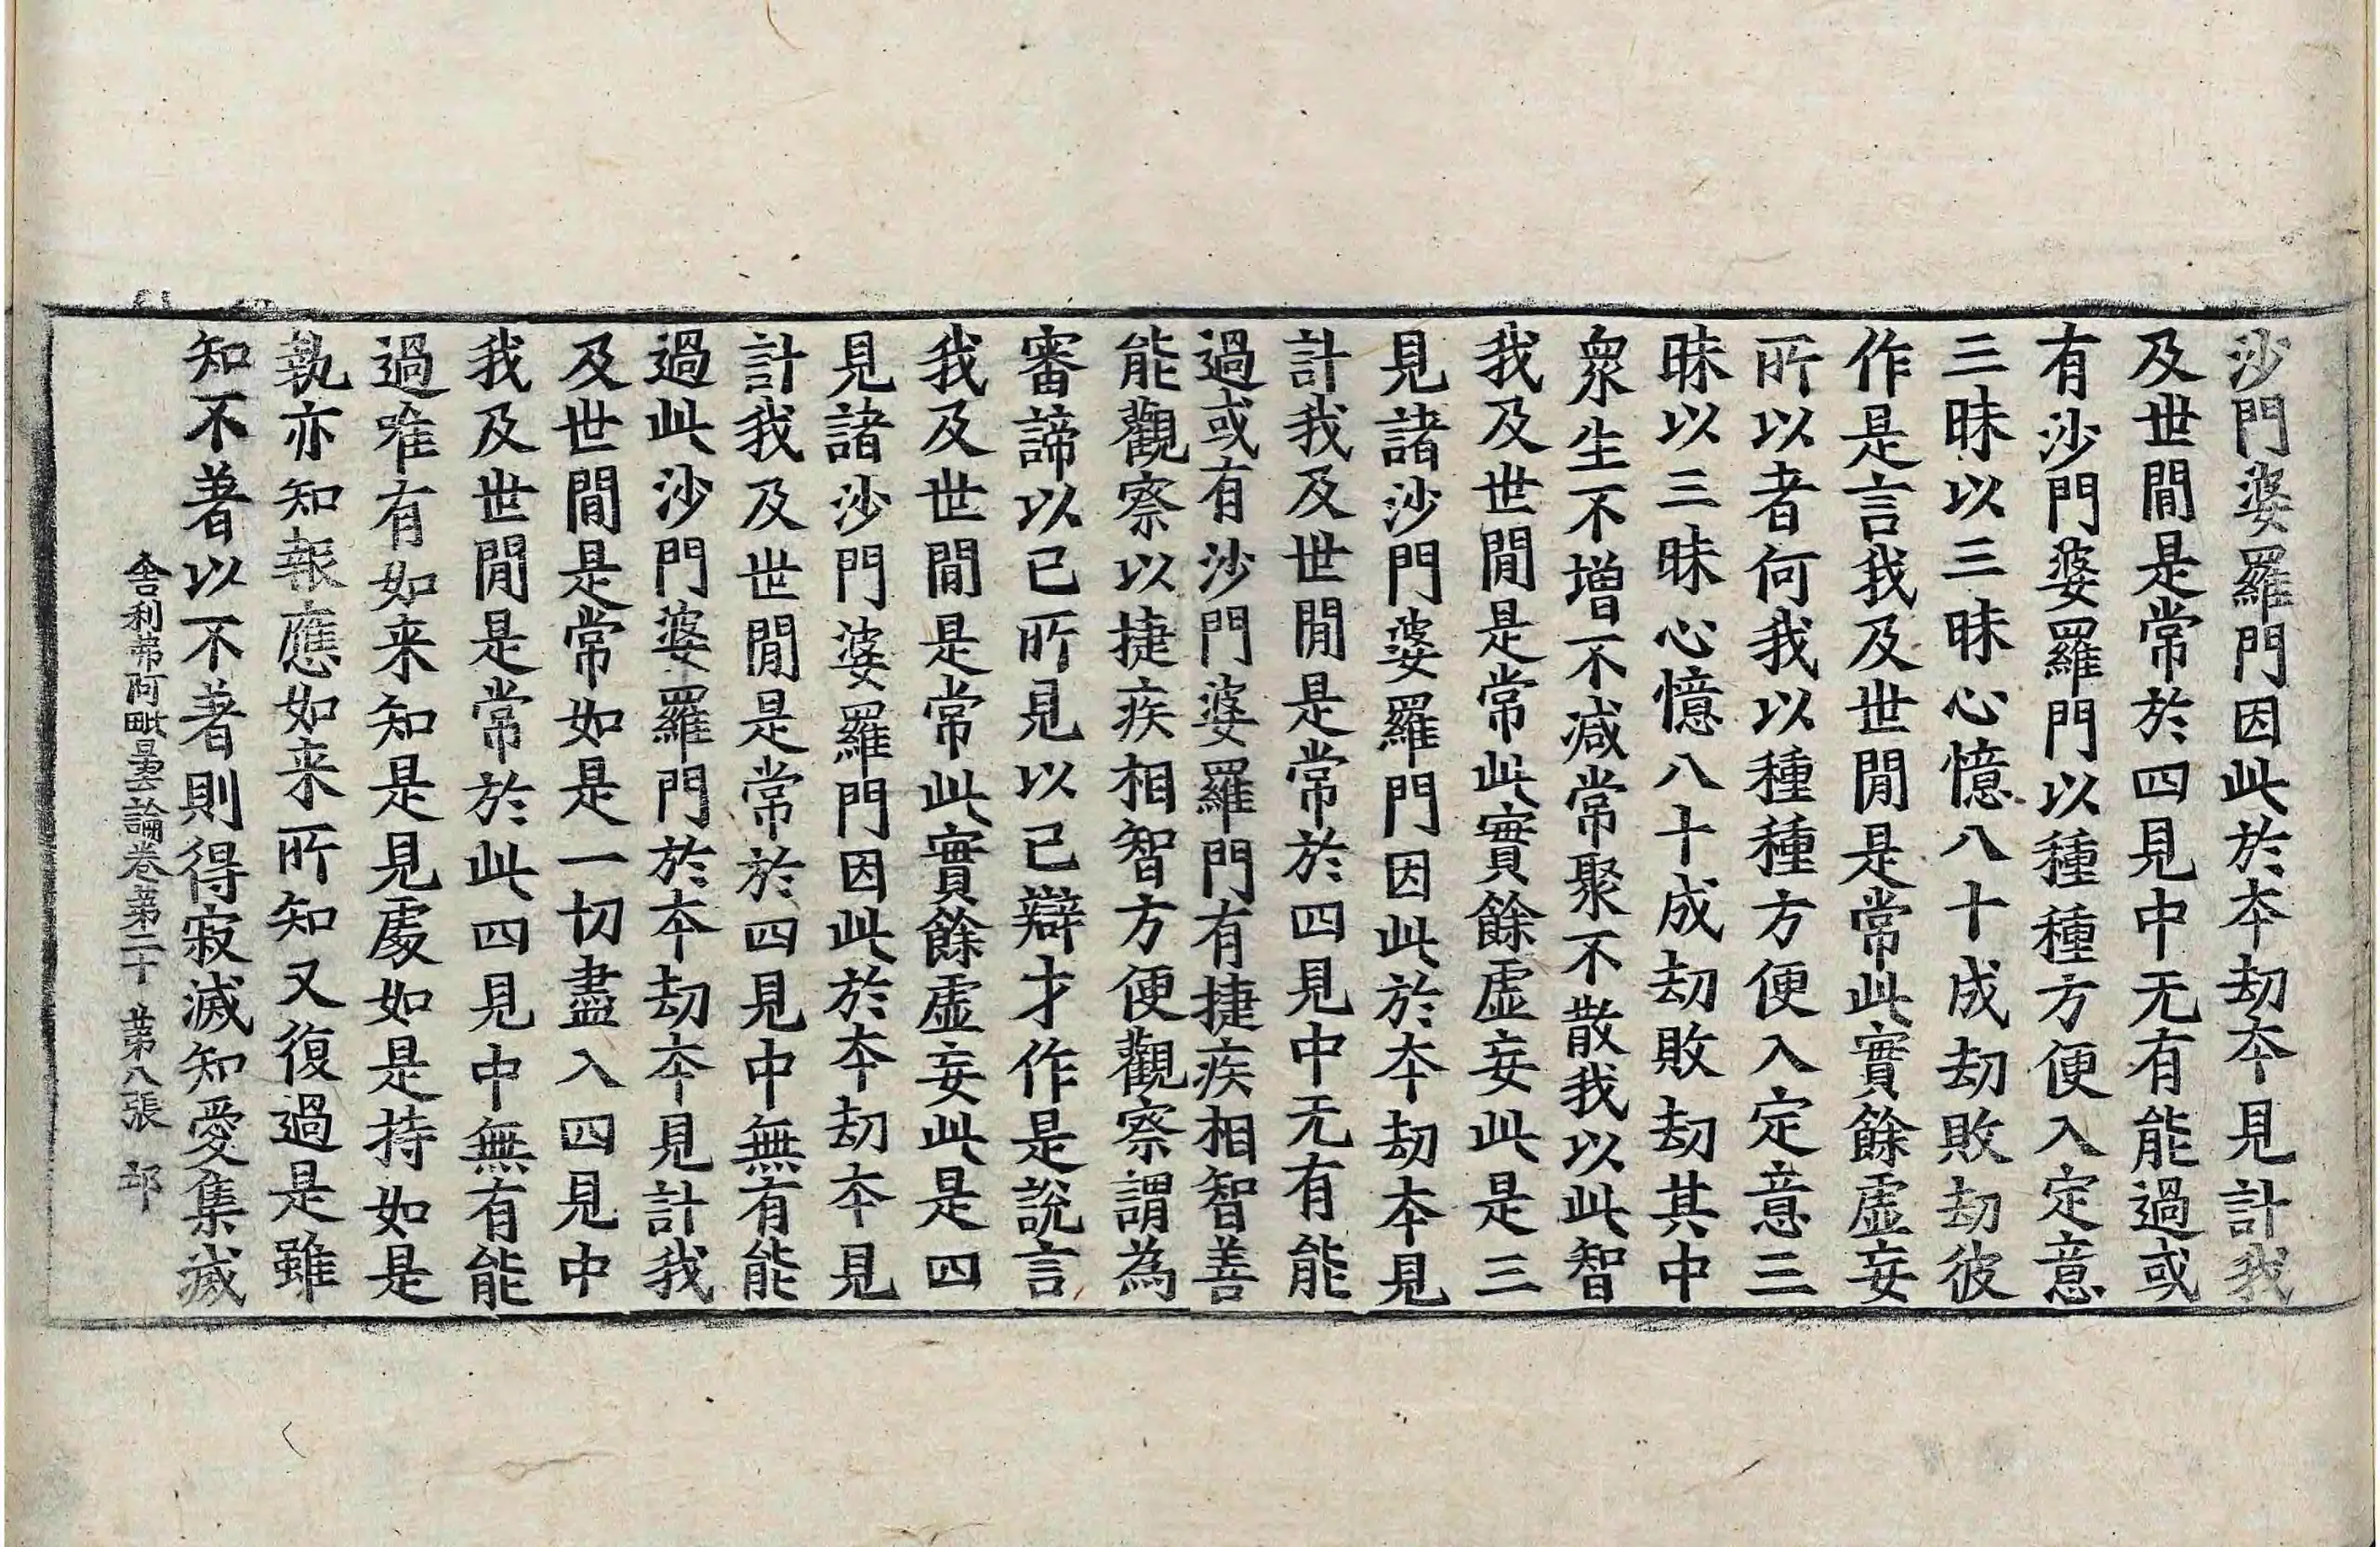 沙門婆羅門因此於夲劫夲見計我
及世間是常於四見中无有能過或
有沙門婆羅門以種種方便入定意
三昧以三昧心憶八十成劫敗劫彼
作是言我及世間是常此實餘虛妄
所以者何我以種種方便入定意三
昧以三昧心憶八十成劫敗劫其中
衆生不增不減常聚不散我以此智
我及世間是常此實餘虛妄此是三
見諸沙門婆羅門因此於夲劫夲見
計我及世間是常於四見中无有能
過或有沙門婆羅門有捷疾相智善
能觀察以捷疾相智方便觀察謂為
審諦以己所見以己辯才作是說言
我及世間是常此實餘虛妄此是四
見諸沙門婆羅門因此於夲劫夲見
計我及世間是常於四見中無有能
過此沙門婆羅門於夲劫夲見計我
及世間是常如是一切盡入四見中
我及世間是常於此四見中無有能
過唯有如来知是見處如是持如是
執亦知報應如来所知又復過是雖
知不著以不著則得寂滅知愛集滅
舍利弗阿毗曇論卷苐二十　苐八張　邙